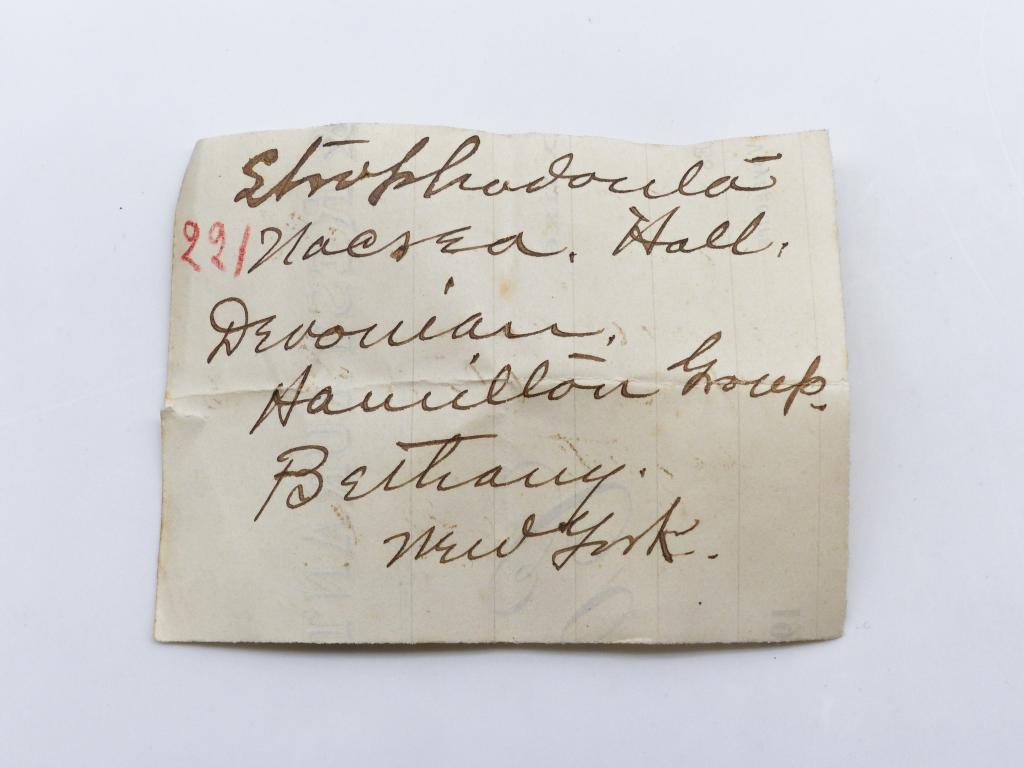 Strophodonta
221 Nacrea. Hall.
Devonian.
Hamilton Group.
Bethany.
New York.